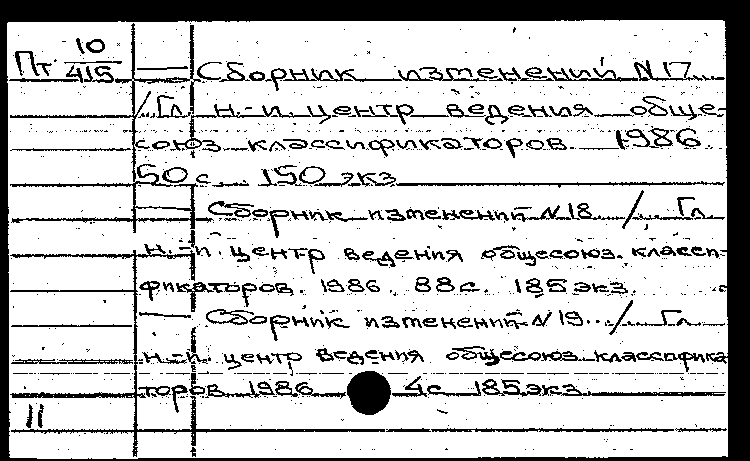 Пт 10/415 — Сборник изменений N 17
/ Гл. н.-и. центр ведения обще-
союз классификаторов. 1986
50 с. 150 экз
— Сборник изменений N 18 / Гл.
н.-и. центр ведения общесоюз. класси-
фикаторов. 1986. 88 с. 185 экз.
— Сборник изменений N 19... / Гл.
н.-и. центр ведения общесоюз. классифика
торов 1986 4 с 185 экз.
11